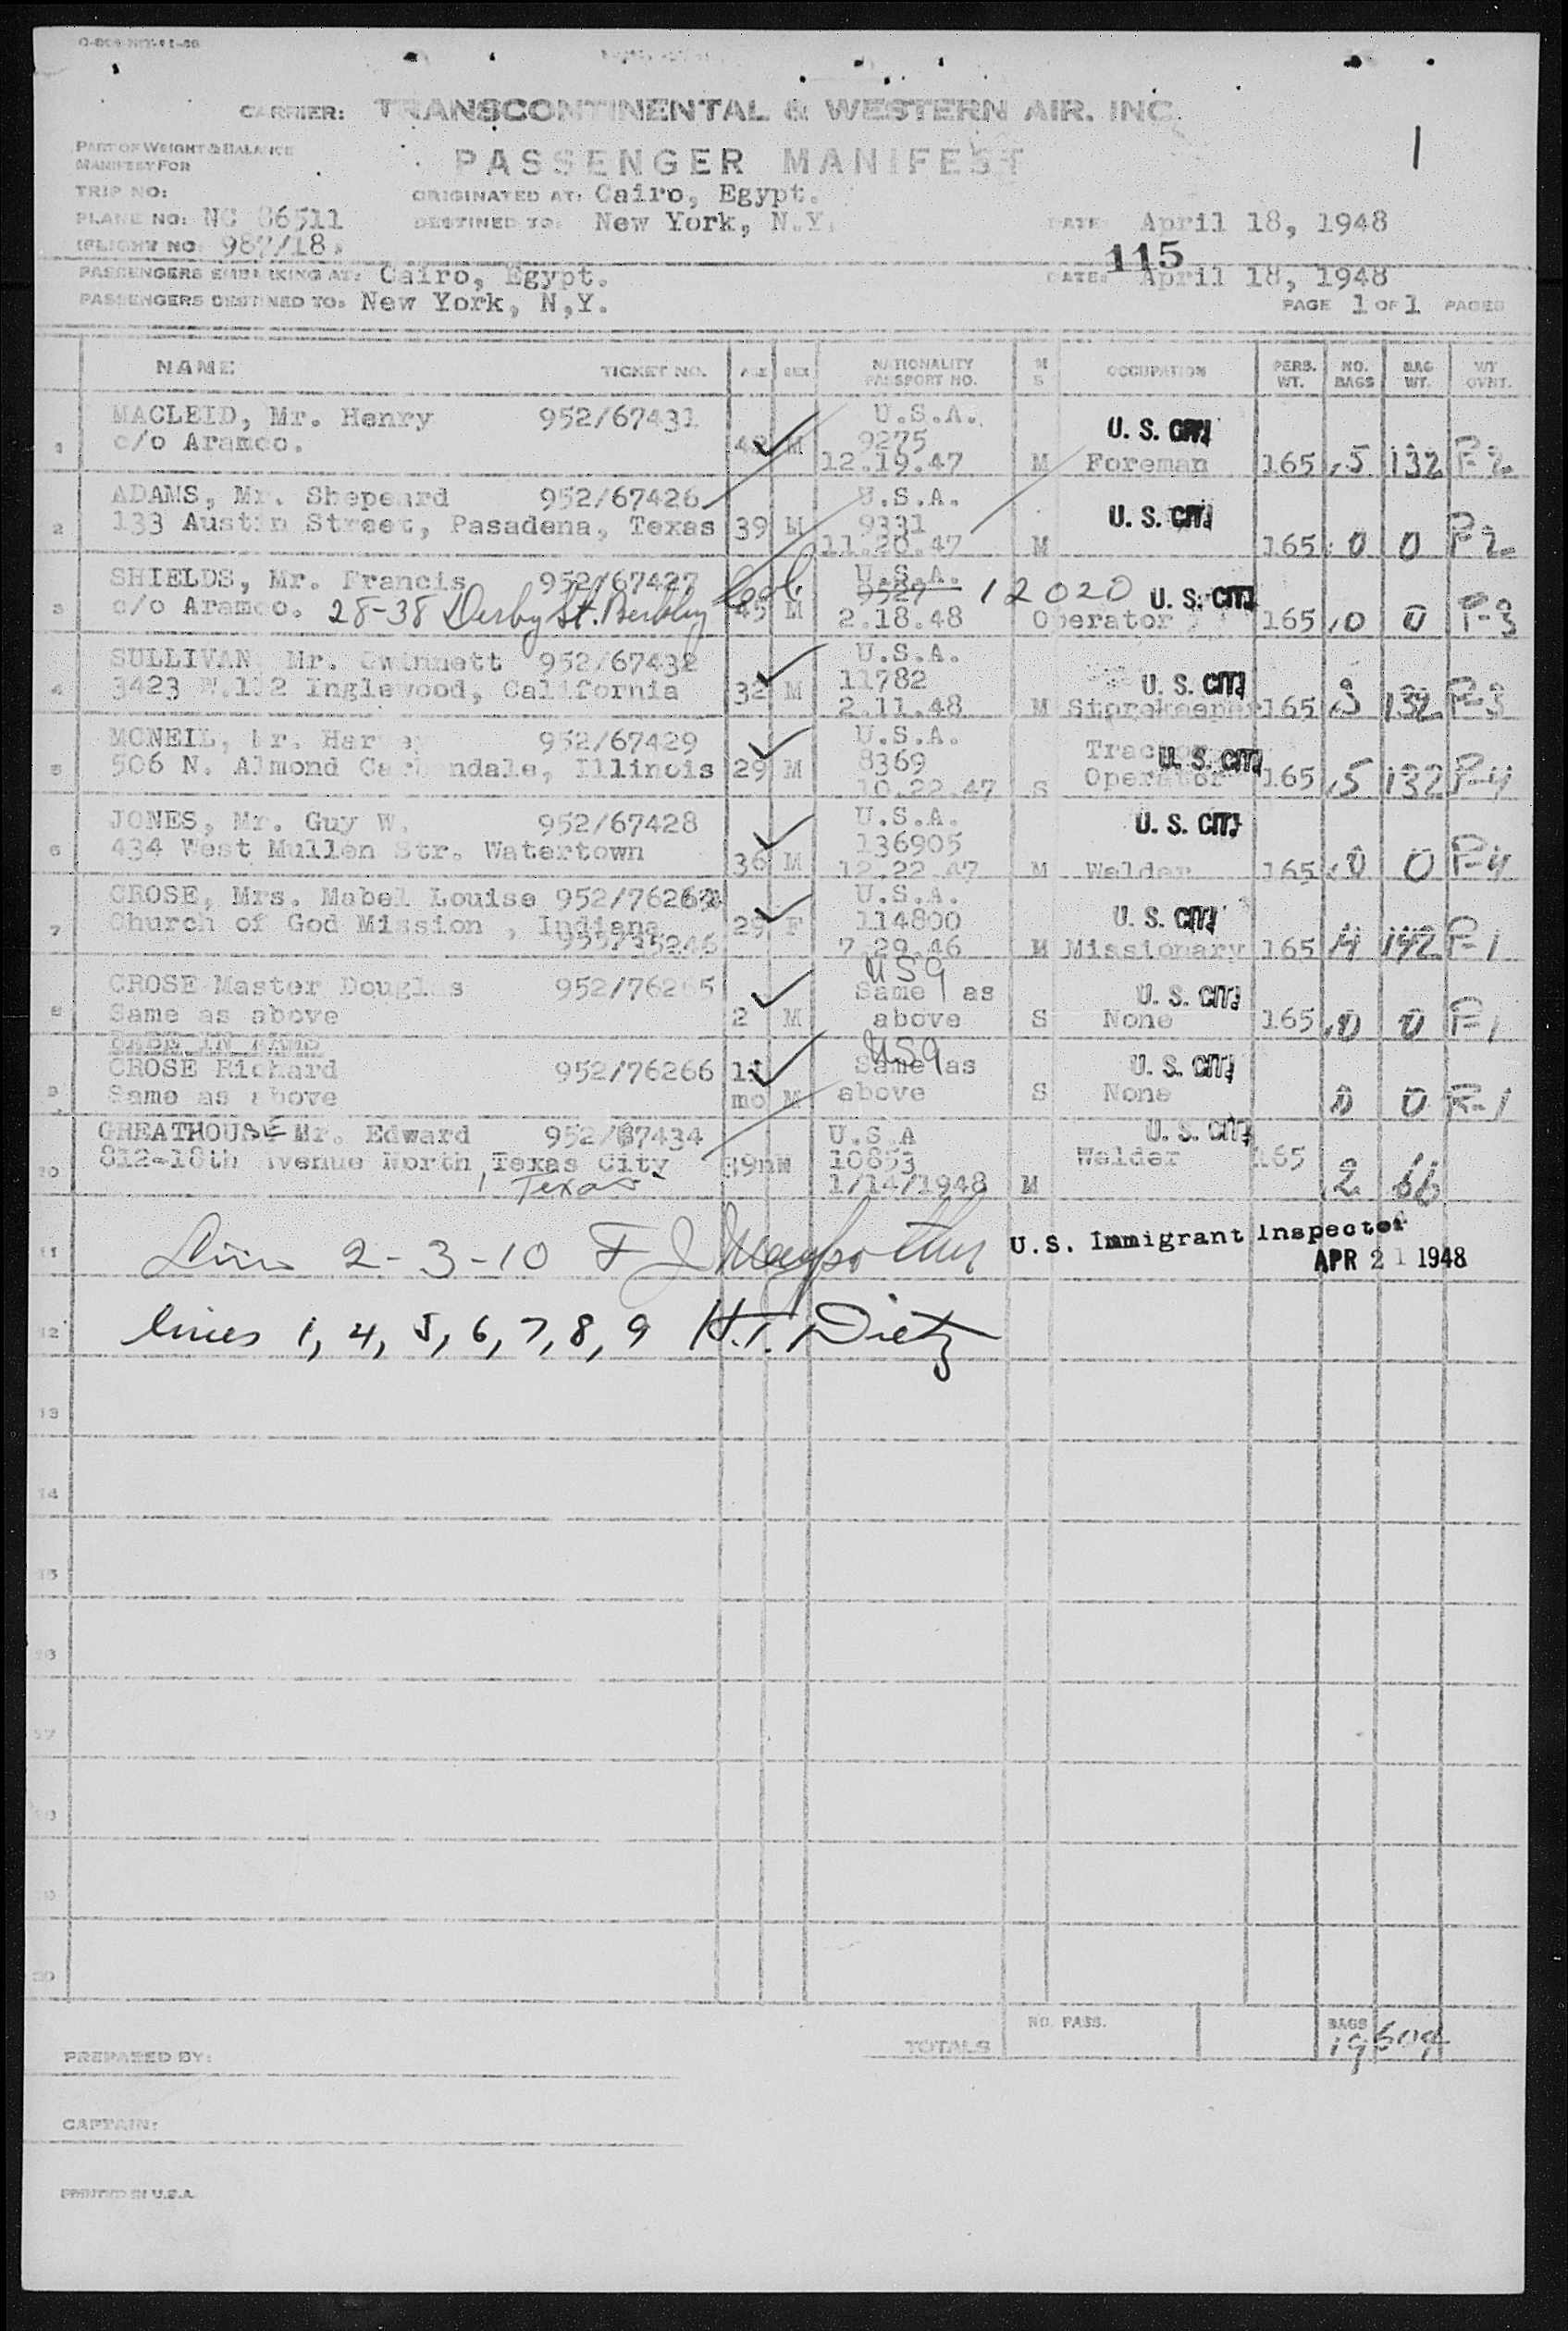 CARRIER: TRANSCONTINENTAL & WESTERN AIR. INC.
PART OF WEIGHT & BALANCE
MANIFEST FOR
PASSENGER MANIFEST
1
TRIP NO:
ORIGINATED AT: Cairo, Egypt.
PLANE NO: NC 86511
DESTINED TO: New York, N.Y.
DATE: April 18, 1948
FLIGHT NO 987/18.
115
PASSENGERS EMBARKING AT: Cairo, Egypt.
DATE: April 18, 1948
PASSENGERS DESTINED TO: New York, N,Y.
PAGE 1 OF 1 PAGES
NAME TICKET NO. AGE SEX NATIONALITY PASSPORT NO. M S OCCUPATION PERS. WT. NO. BAGS BAG WT. WT OVNT.
MACLEID, Mr. Henry 952/67431 U.S.A. U. S. CIT.
1 c/o Aramco. M 9275
12.19.47 M Foreman 165 5 132 P-2
ADAMS, Mr. Shepeard 952/67426 U.S.A. U. S. CIT.
2 133 Austin Street, Pasadena, Texas 39 M 9331
11.20.47 M 165 0 0 P-2
SHIELDS, Mr. Francis 952/67427 U.S.A.
9529 12020 U. S. CIT.
3 c/o Aramco. 28-38 Derby St. Berkley Cal 45 M 2.18.48 Operator 165 0 0 P-3
SULLIVAN Mr. Gwinnett 952/67432 U.S.A.
4 3423 W.112 Inglewood, California 32 M 11782 U. S. CIT.
2.11.48 M Storekeeper 165 132 P-3
MCNEIL, Mr. Harvey 952/67429 U.S.A.
5 506 N. Almond Carbondale, Illinois 29 M 8369 Tractor Operator U. S. CIT.
10.22.47 S 165 5 132 P-4
JONES, Mr. Guy W. 952/67428 U.S.A. U. S. CIT.
6 434 West Mullen Str. Watertown 36 M 136905
12.22.47 M Welder 165 0 0 P-4
CROSE, Mrs. Mabel Louise U.S.A.
7 Church of God Mission , Indiana 29 F 114800 U. S. CIT.
955/35246 7.29.46 M Missionary 165 4 142 P-1
USA
CROSE Master Douglas 952/76265 Same as U. S. CIT.
8 Same as above 2 M above S None 165 0 0 P-1
BABE IN ARMS
USA
CROSE Richard 952/76266 Same as U. S. CIT.
9 Same as above mo M above S None 0 0 P-1
GREATHOUSE Mr. Edward 952/67434 U.S.A U. S. CIT.
10 812-18th Avenue North Texas City 39 M 10853 Welder 165
Texas 1/14/1948 M 2 66
11 2-3-10 F J U.S. Immigrant Inspector
APR 21 1948
12 lines 1, 4, 5, 6, 7, 8, 9 H.T. Dietz
13
14
15
16
17
18
19
20
NO. PASS. BAGS
TOTALS 19 604
PREPARED BY:
CAPTAIN:
PRINTED IN U.S.A.